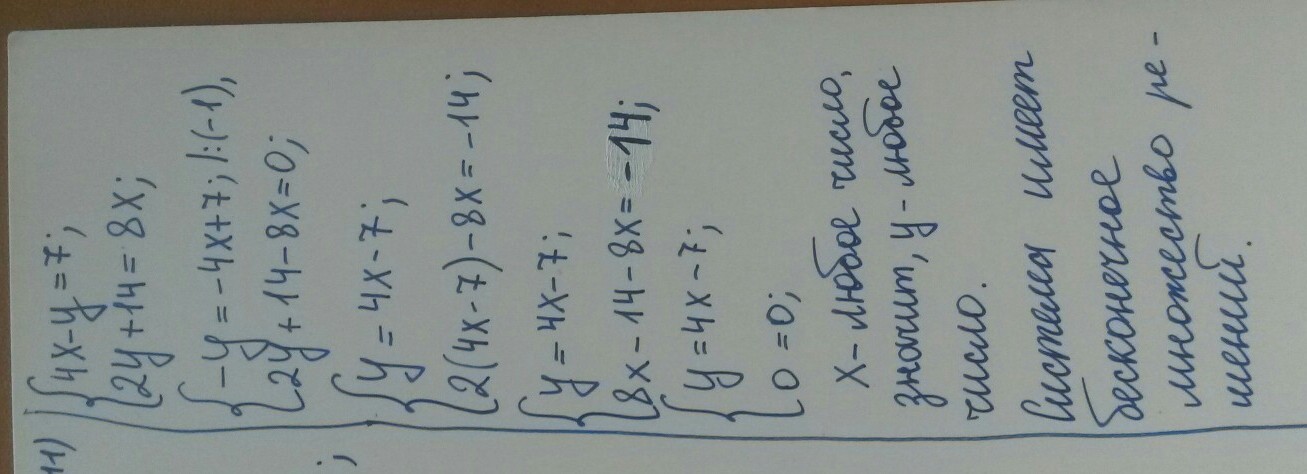 11) {4x-y=7;
{2y+14=8x;
{-y=-4x+7; |:(-1),
{2y+14-8x=0;
{y=4x-7;
{2(4x-7)-8x=-14;
{y=4x-7;
{8x-14-8x=-14;
{y=4x-7;
{0=0;
x-любое число,
значит, y-любое
число.
Система имеет
бесконечное
множество ре-
шений.
;